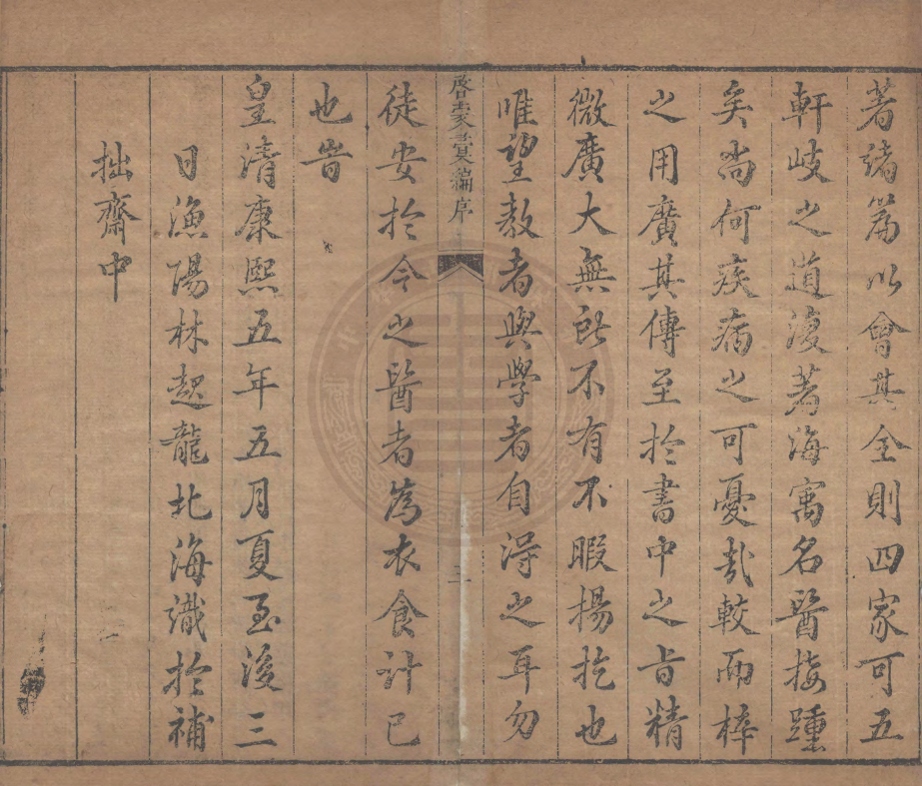 著諸篇以會其全則四家可五
軒岐之道復著海寓名醫接踵
矣尚何疾病之可憂哉較而梓
之用廣其傳至於書中之旨精
微廣大無所不有不暇揚扢也
唯望教者與學者自得之耳勿
啓蒙彙編序
徒安於今之醫者為衣食計已
也旹
皇清康熙五年五月夏至後三
日漁陽林起龍北海識於補
拙齋中